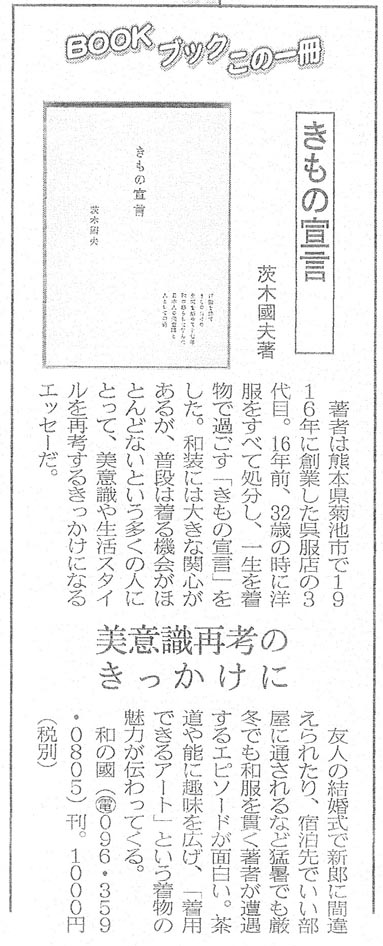 BOOK ブック この一冊
きもの宣言
茨木國夫著
きもの宣言
茨木國夫
著者は熊本県菊池市で19
16年に創業した呉服店の3
代目。16年前、32歳の時に洋
服をすべて処分し、一生を着
物で過ごす「きもの宣言」を
した。和装には大きな関心が
あるが、普段は着る機会がほ
とんどないという多くの人に
とって、美意識や生活スタイ
ルを再考するきっかけになる
エッセーだ。
美意識再考の
きっかけに
友人の結婚式で新郎に間違
えられたり、宿泊先でいい部
屋に通されるなど猛暑でも厳
冬でも和服を貫く著者が遭遇
するエピソードが面白い。茶
道や能に趣味を広げ、「着用
できるアート」という着物の
魅力が伝わってくる。
和の國(電096・359
・0805)刊。1000円
(税別)